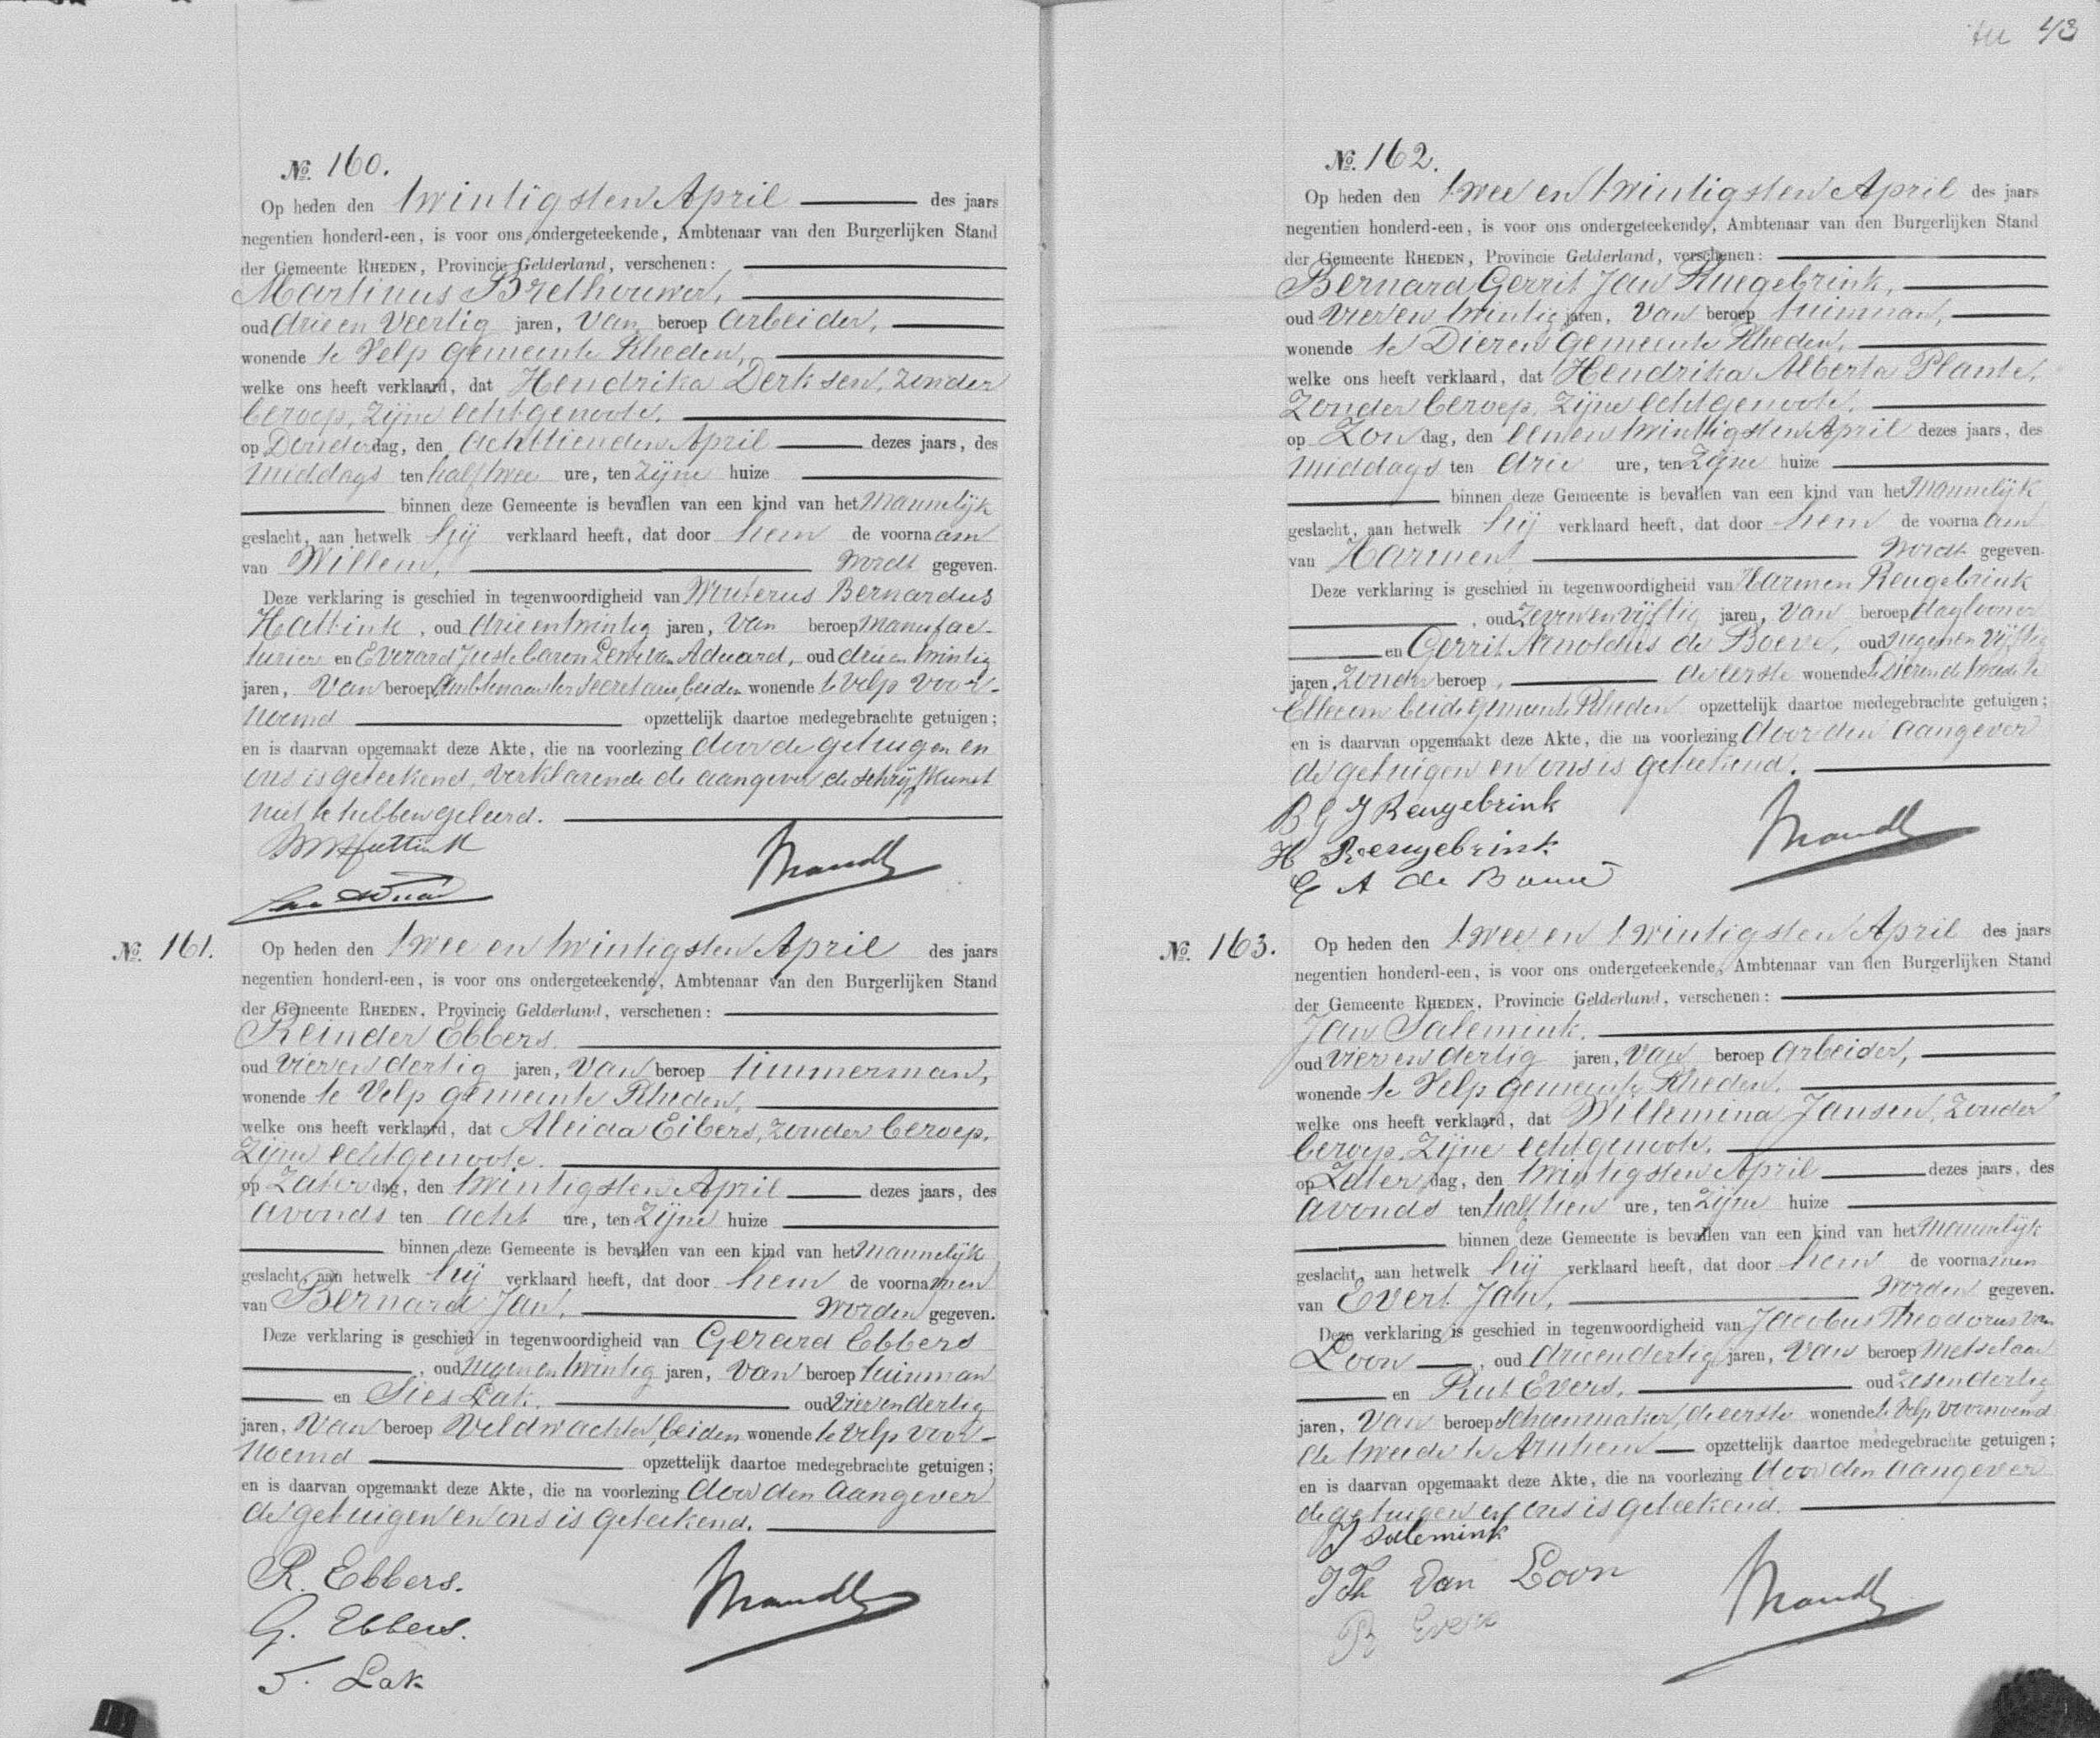 43
No. 160.
Op heden den twintigsten April des jaars
negentien honderd-een, is voor ons ondergeteekende, Ambtenaar van den Burgerlijken Stand
der Gemeente RHEDEN, Provincie Gelderland, verschenen:
Martinus Brethouwer,
oud drie en veertig jaren, van beroep arbeider,
wonende te Velp gemeente Rheden,
welke ons heeft verklaard, dat Hendrika Derksen, zonder
beroep, zijne echtgenoote,
op Donderdag, den achttienden April dezes jaars, des
middags ten half twee ure, ten zijne huize
binnen deze Gemeente is bevallen van een kind van het mannelijk
geslacht, aan hetwelk hij verklaard heeft, dat door hem de voornaam
van Willem, wordt gegeven.
Deze verklaring is geschied in tegenwoordigheid van Wuterus Bernardus
Hattink, oud drie en twintig jaren, van beroep manufac-
turier en Everard Juste baron Lewe van Aduard, oud drie en twintig
jaren, van beroep ambtenaar ter secretarie, beiden wonende te Velp voor-
noemd opzettelijk daartoe medegebrachte getuigen;
en is daarvan opgemaakt deze Akte, die na voorlezing door de getuigen en
ons is geteekend, verklarende de aangever de schrijfkunst
niet te hebben geleerd.
No. 161.
Op heden den twee en twintigsten April des jaars
negentien honderd-een, is voor ons ondergeteekende, Ambtenaar van den Burgerlijken Stand
der Gemeente RHEDEN, Provincie Gelderland, verschenen:
Reinder Ebbers,
oud vier en dertig jaren, van beroep timmerman,
wonende te Velp gemeente Rheden,
welke ons heeft verklaard, dat Aleida Eibers, zonder beroep,
zijne echtgenoote,
op Zaterdag, den twintigsten April dezes jaars, des
avonds ten acht ure, ten zijne huize
binnen deze Gemeente is bevallen van een kind van het mannelijk
geslacht, aan hetwelk hij verklaard heeft, dat door hem de voornamen
van Bernard Jan, worden gegeven.
Deze verklaring is geschied in tegenwoordigheid van Gerard Ebbers
, oud negen en twintig jaren, van beroep tuinman
en Sies Lak, oud vier en dertig
jaren, van beroep veldwachter, beiden wonende te Velp voor-
noemd opzettelijk daartoe medegebrachte getuigen;
en is daarvan opgemaakt deze Akte, die na voorlezing door den aangever
de getuigen en ons is geteekend.
R. Ebbers.
G. Ebbers.
S. Lak
No. 162.
Op heden den twee en twintigsten April des jaars
negentien honderd-een, is voor ons ondergeteekende, Ambtenaar van den Burgerlijken Stand
der Gemeente RHEDEN, Provincie Gelderland, verschenen:
Bernard Gerrit Jan Ruegebrink,
oud vier en twintig jaren, van beroep tuinman,
wonende te Dieren gemeente Rheden,
welke ons heeft verklaard, dat Hendrika Alberta Plante,
zonder beroep, zijne echtgenoote,
op Zondag, den een en twintigsten April dezes jaars, des
middags ten drie ure, ten zijne huize
binnen deze Gemeente is bevallen van een kind van het mannelijk
geslacht, aan hetwelk hij verklaard heeft, dat door hem de voornaam
van Harmen, wordt gegeven.
Deze verklaring is geschied in tegenwoordigheid van Harmen Reugebrink
, oud zeven en vijftig jaren, van beroep daglooner
en Gerrit Arnoldus de Boeve, oud negen en vijftig
jaren, zonder beroep, de eerste wonende te Dieren de tweede te
Ellecom beide gemeente Rheden opzettelijk daartoe medegebrachte getuigen;
en is daarvan opgemaakt deze Akte, die na voorlezing door den aangever
de getuigen en ons is geteekend.
B G J Reugebrink
H Reugebrink
G A de
No. 163.
Op heden den twee en twintigsten April des jaars
negentien honderd-een, is voor ons ondergeteekende, Ambtenaar van den Burgerlijken Stand
der Gemeente RHEDEN, Provincie Gelderland, verschenen:
Jan Salemink,
oud vier en dertig jaren, van beroep arbeider,
wonende te Velp gemeente Rheden,
welke ons heeft verklaard, dat Willemina Jansen, zonder
beroep, zijne echtgenoote,
op Zaterdag, den twintigsten April dezes jaars, des
avonds ten half tien ure, ten zijne huize
binnen deze Gemeente is bevallen van een kind van het mannelijk
geslacht, aan hetwelk hij verklaard heeft, dat door hem de voornamen
van Evert Jan, worden gegeven.
Deze verklaring is geschied in tegenwoordigheid van Jacobus Theodorus van
Loon, oud drie en dertig jaren, van beroep metselaar
en Rut Evers, oud zes en dertig
jaren, van beroep schoenmaker, de eerste wonende te Velp voornoemd
de tweede te Arnhem opzettelijk daartoe medegebrachte getuigen;
en is daarvan opgemaakt deze Akte, die na voorlezing door den aangever
de getuigen en ons is geteekend.
J Salemink
J Th van Loon
R Evers